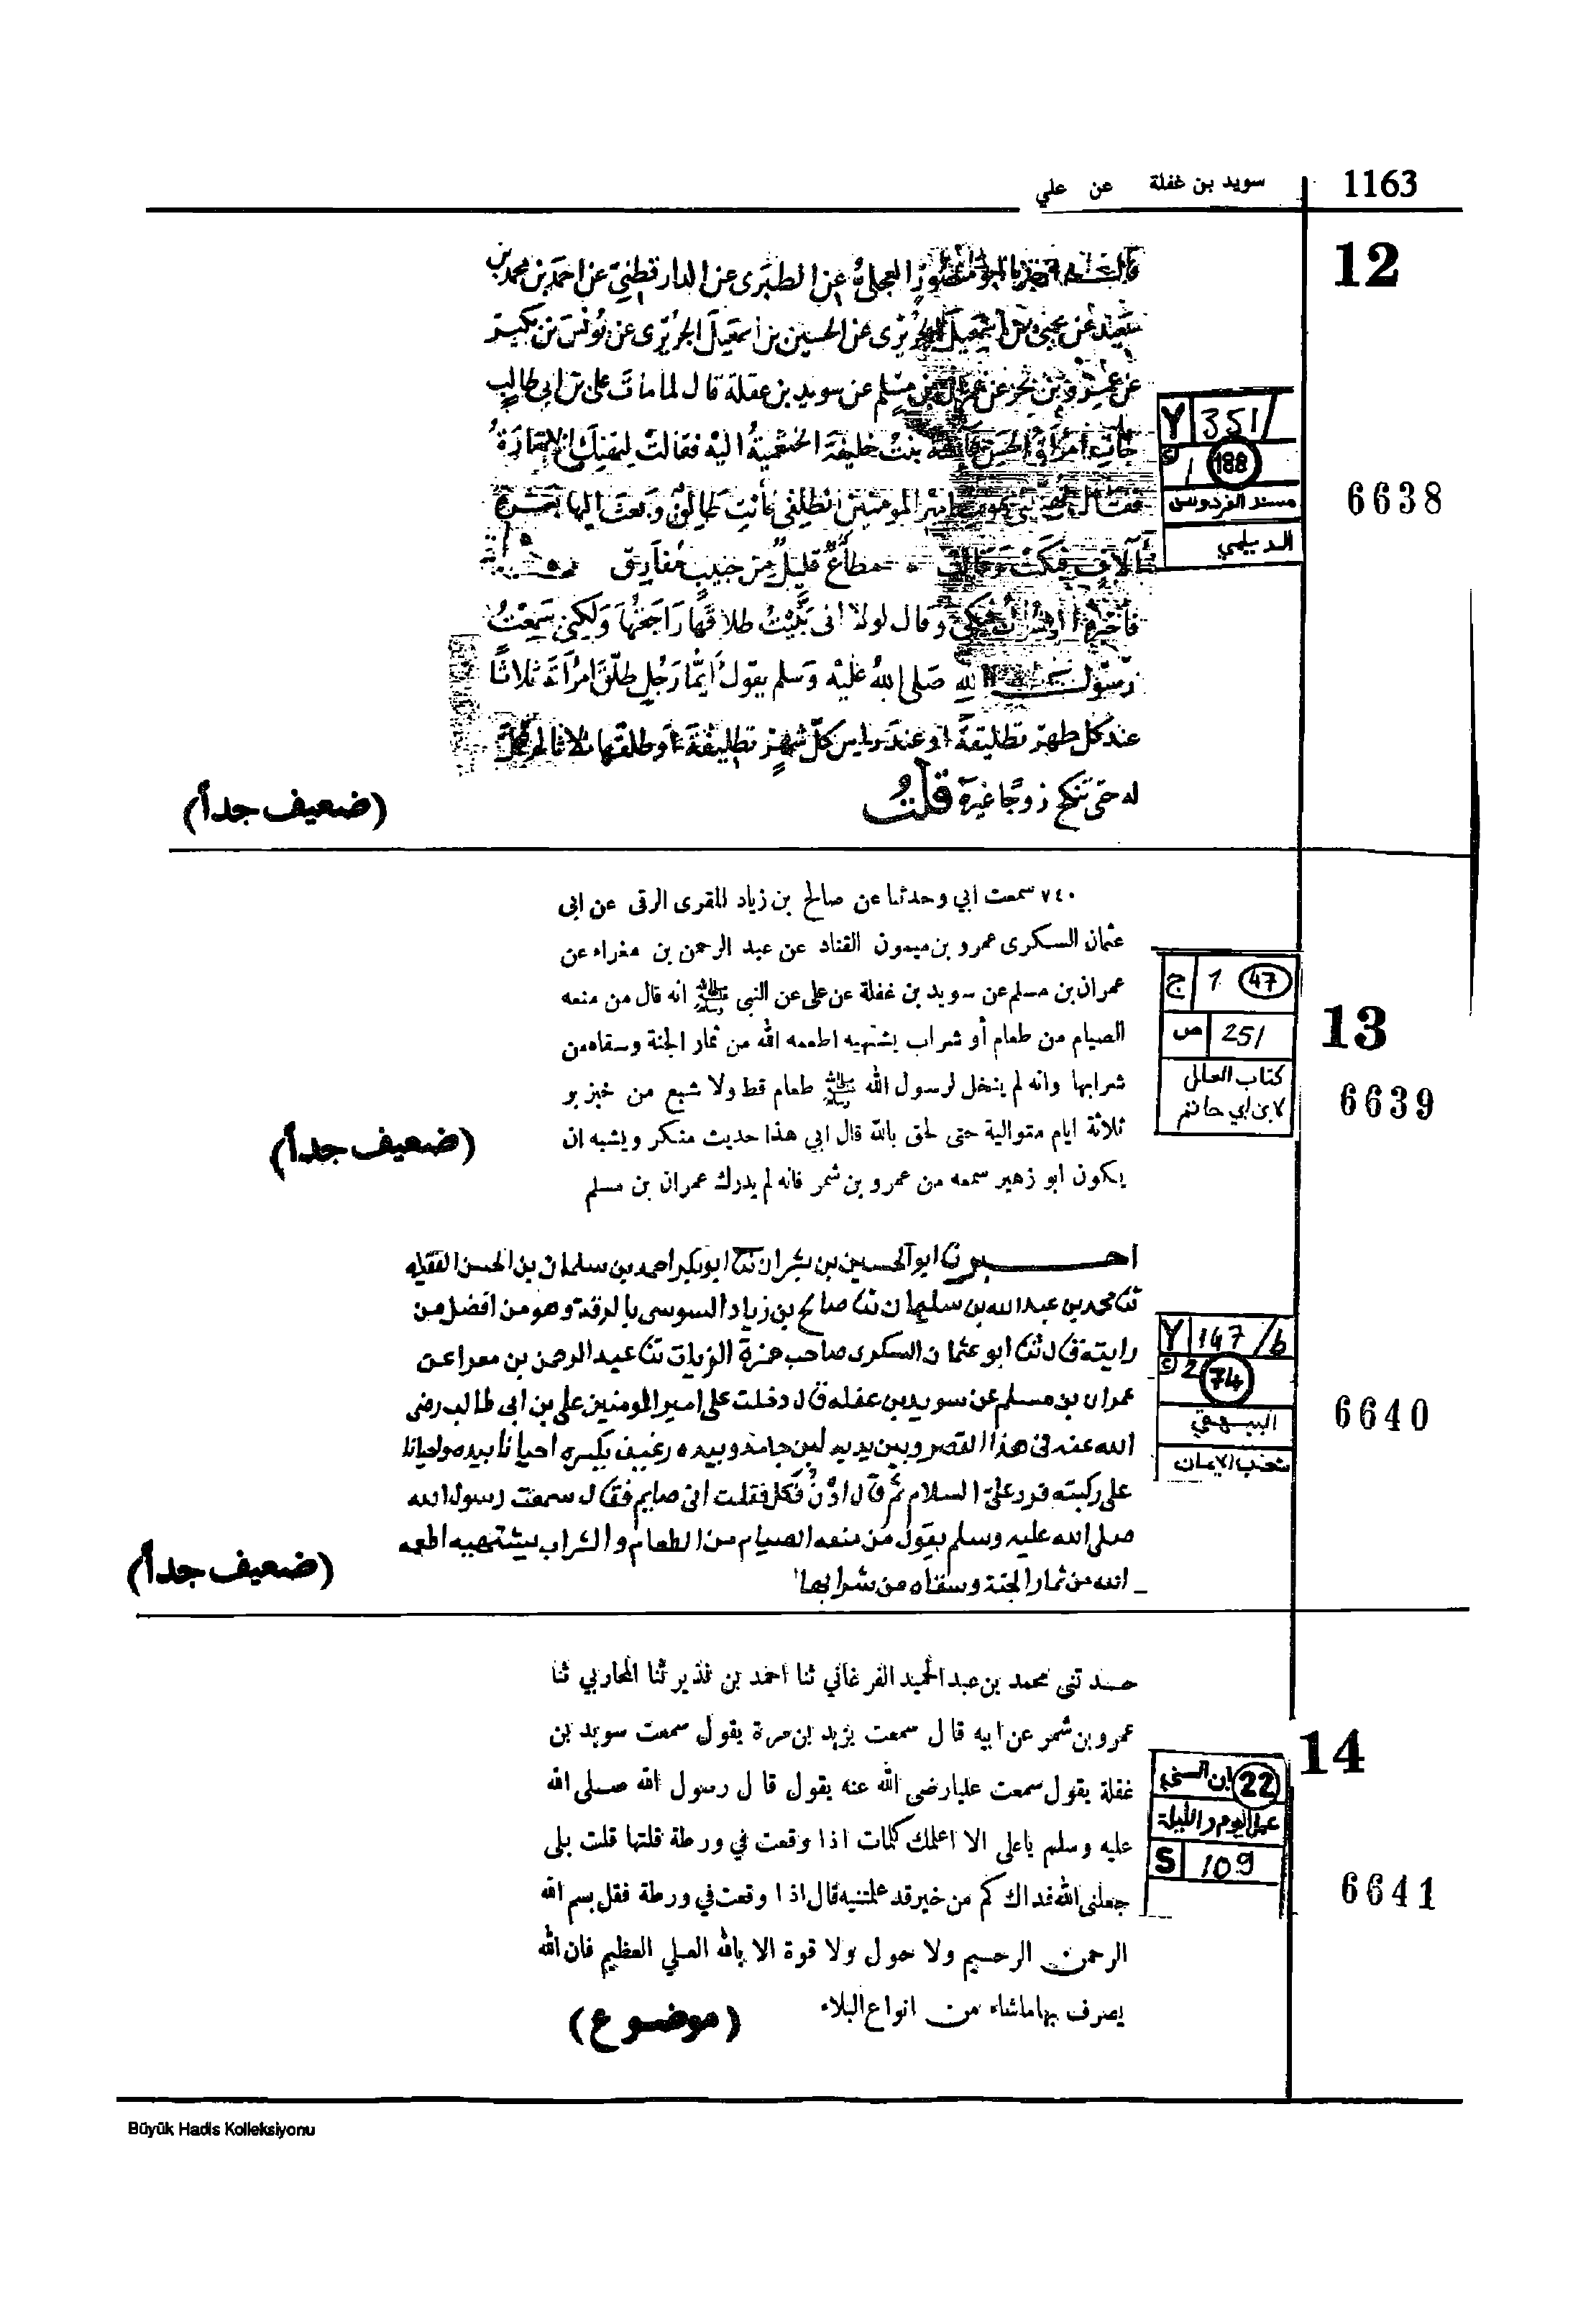 1163
سويد بن غفلة عن علي
12
العجلى عن الطبرى عن الدارقطنى عن احمد بن محمد بن
عن الحسين بن اسمعيل الجريرى عن يونس بن بكير
مسلم عن سويد بن عقلة قال لما مات على بن ابى طالب
بنت خليفة الخثعمية اليه فقالت ليهنك الامارة
امير المومنين انطلقى فانت طالق وبعث اليها بعشرة
آلاف فبكت وقالت متاع قليل من حبيب مفارق
وقال لولا انى طلاقها راجعتها ولكنى سمعت
رسول الله صلى الله عليه وسلم يقول ايما رجل طلق امراته ثلاثا
عند كل طهر تطليقة او عند راس كل شهر تطليقة او طلقها ثلاثا لم تحل
له حتى تنكح زوجا غيره قلت
(ضعيف جداً)
Y 351/
c 1 188
مسند الفردوس
الديلمي
6638
٧٤٠ سمعت ابي وحدثنا عن صالح بن زياد المقرى الرقى عن ابى
عثمان السكرى عمرو بن ميمون القناد عن عبد الرحمن بن مغراء عن
عمران بن مسلم عن سويد بن غفلة عن على عن النبى ﷺ انه قال من منعه
الصيام من طعام أو شراب يشتهيه اطعمه الله من ثمار الجنة وسقاه من
شرابها وانه لم ينخل لرسول الله ﷺ طعام قط ولا شبع من خبز بر
ثلاثة ايام متوالية حتى لحق بالله قال ابي هذا حديث منكر ويشبه ان
يكون ابو زهير سمعه من عمرو بن شمر فانه لم يدرك عمران بن مسلم
(ضعيف جداً)
ج 1 47
ص 251
كتاب العلل
لابن ابي حاتم
13
6639
اخبرنا ابو الحسين بن بشران ثنا ابو بكر احمد بن سلمان بن الحسن الفقيه
ثنا محمد بن عبد الله بن سليمان ثنا صالح بن زياد السوسى بالرقة وهو من افضل من
رايته قال ثنا ابو عثمان السكرى صاحب حمزة الزيات ثنا عبد الرحمن بن معرا عن
عمران بن مسلم عن سويد بن عفله قال دخلت على امير المومنين على بن ابى طالب رضى
الله عنه فى هذا القصر وبين يديه لبن حامض وبيده رغيف يكسره احيانا بيده واحيانا
على ركبته فرد علىّ السلام ثم قال ادن فكل فقلت انى صايم فقال سمعت رسول الله
صلى الله عليه وسلم يقول من منعه الصيام من الطعام والشراب يشتهيه اطعمه
الله من ثمار الجنة وسقاه من شرابها
(ضعيف جداً)
Y 147/b
c 2 74
البيهقي
شعب الايمان
6640
حدثنى محمد بن عبد الحميد الفرغاني ثنا احمد بن نذير ثنا المحاربي ثنا
عمرو بن شمر عن ابيه قال سمعت يزيد بن مرة يقول سمعت سويد بن
غفلة يقول سمعت عليا رضى الله عنه يقول قال رسول الله صلى الله
عليه وسلم ياعلى الا اعلمك كلمات اذا وقعت في ورطة قلتها قلت بلى
جعلنى الله فداك كم من خير قد علمتنيه قال اذا وقعت في ورطة فقل بسم الله
الرحمن الرحيم ولا حول ولا قوة الا بالله العلي العظيم فان الله
يصرف بها ماشاء من انواع البلاء
(موضوع)
ابن السني 22
عمل اليوم والليلة
S 109
14
6641
Büyük Hadis Kolleksiyonu